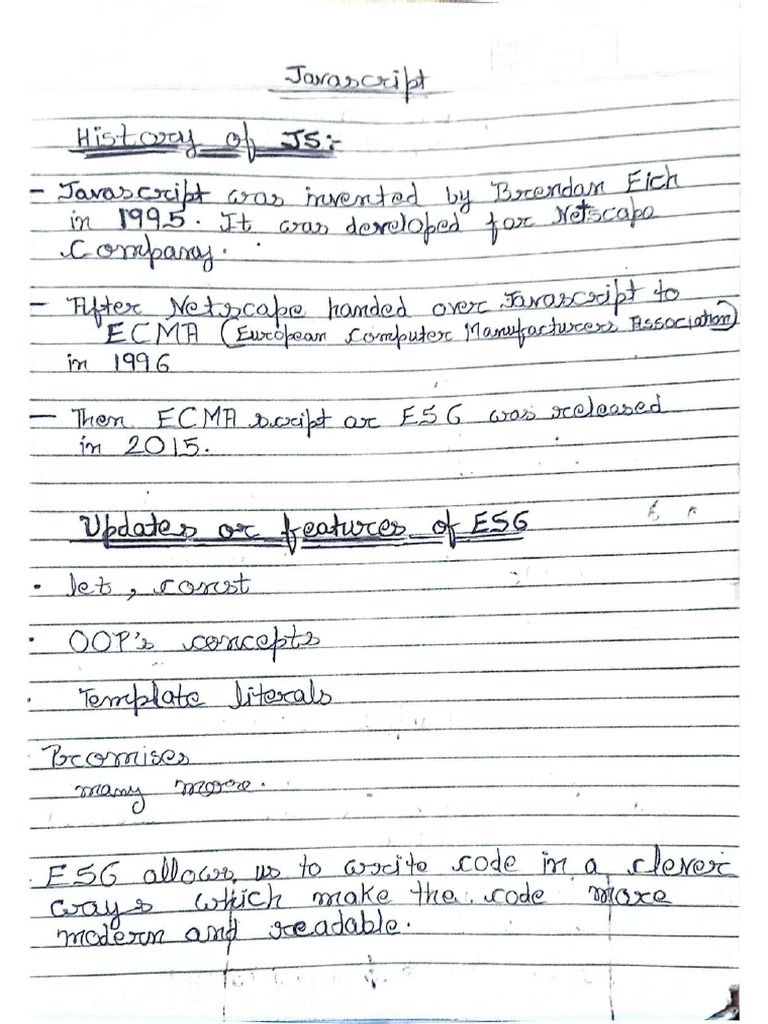 Javascript
History of JS:-
- Javascript was invented by Brendan Eich
in 1995. It was developed for Netscape
Company.
- After Netscape handed over Javascript to
ECMA (European Computer Manufacturers Association)
in 1996
- Then ECMA script or ES6 was released
in 2015.
Updates or features of ES6
• let, const
• OOP's concepts
• Template literals
Promises
many more.
ES6 allows us to write code in a clever
ways which make the code more
modern and readable.